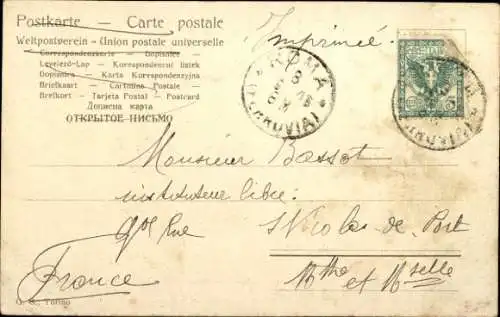 Postkarte — Carte postale
Weltpostverein – Union postale universelle
Correspondenzkarte — Dopisnice
Levelező-Lap — Korrespondencni listek
Dopisnica — Karta Korrespondenzyjna
Briefkaart — Cartolina Postale —
Brefkort — Tarjeta Postal — Postcard
Дописна карта
ОТКРЫТОЕ ПИСЬМО
Imprimé
ROMA
FERROVIA
Monsieur Bassot
instituteur libre
Gde Rue
St Nicolas-de-Port
France
Mthe et Mselle
Torino